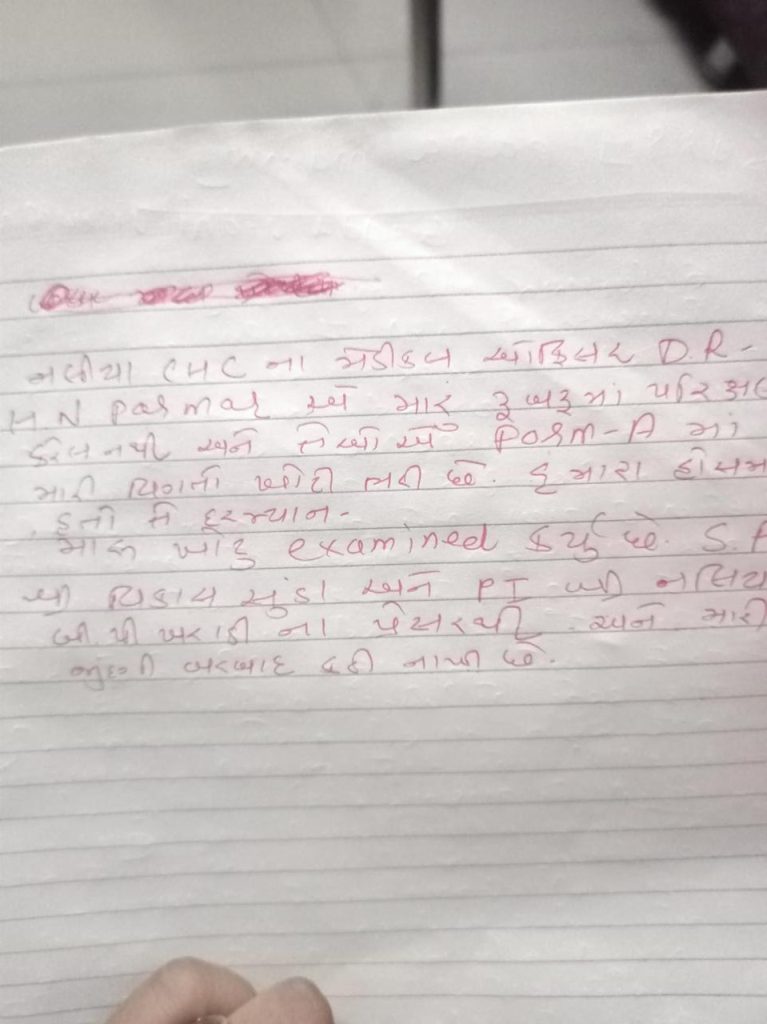 નલીયા CHC ના મેડીકલ ઓફિસર D.R-
H.N Parmar એ મારૂ રૂબરૂમાં પરિક્ષણ
કરેલ નથી અને તેઓ એ Form-A માં
મારી વિગતો ખોટી ભરી છે. હું મારા હોસમાં
હતો તે દરમ્યાન-
મારૂ ખોટુ examined કર્યુ છે. S.P
શ્રી વિકાસ સુંડા અને PI શ્રી નલિયા
ના પ્રેસરથી અને મારી
જીંદગી બરબાદ કરી નાખી છે.